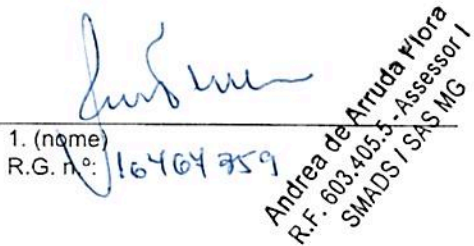 1. (nome)
R.G. n.º: 16464359
Andrea de Arruda Flora
R.F. 603.405.5 - Assessor I
SMADS / SAS MG